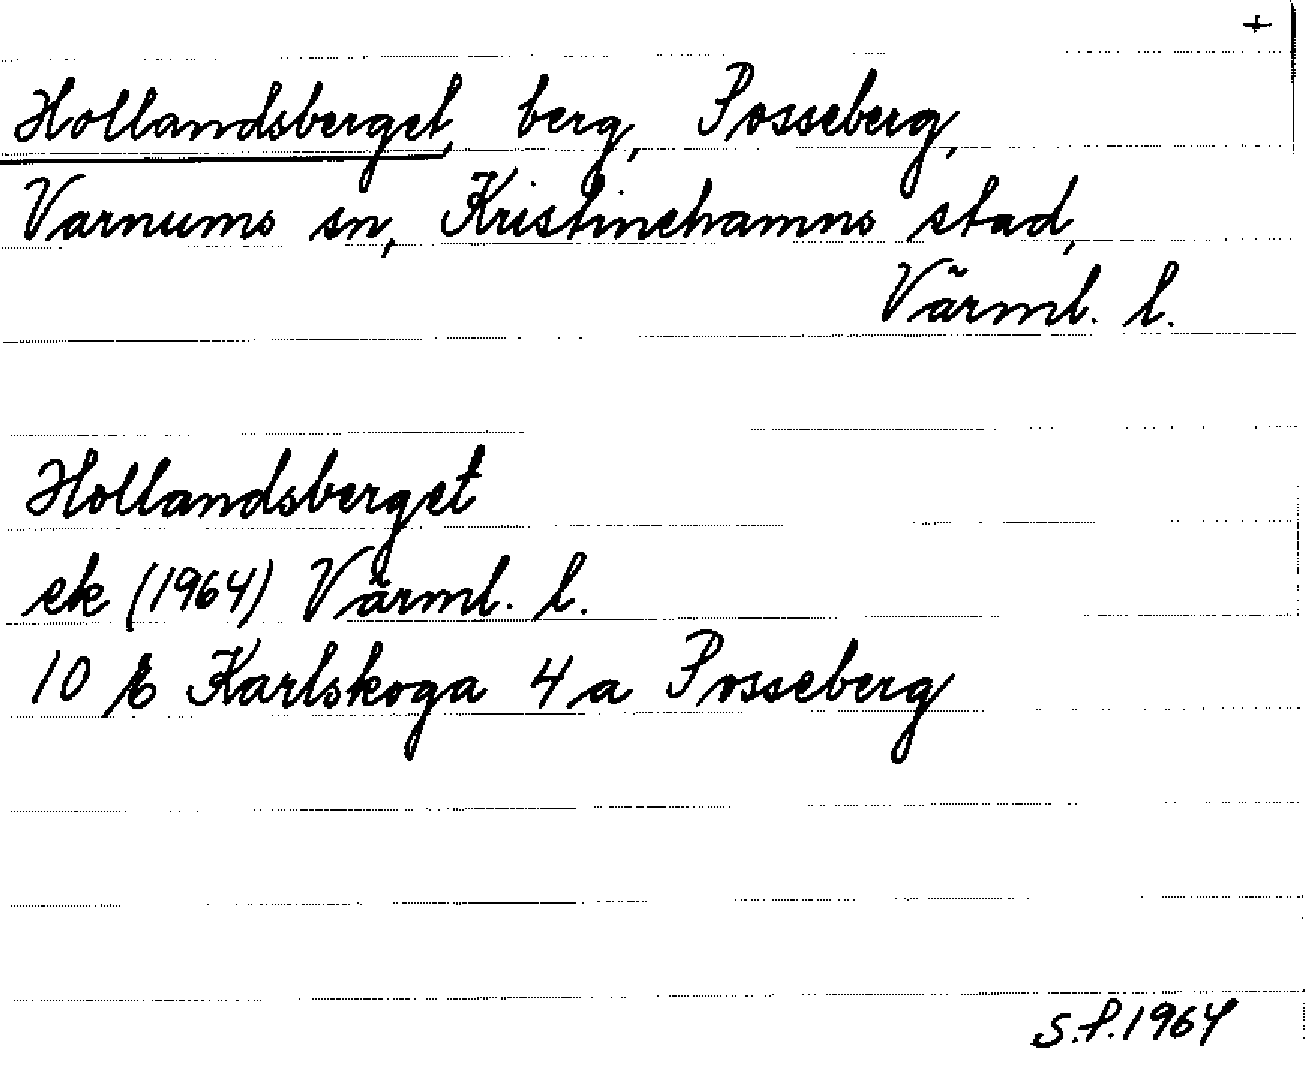 +
Hollandsberget, berg, Posseberg,
Varnums sn, Kristinehamns stad,
Värml. l.
Hollandsberget
ek (1964) Värml. l.
10 E Karlskoga 4 a Posseberg
S.P. 1964